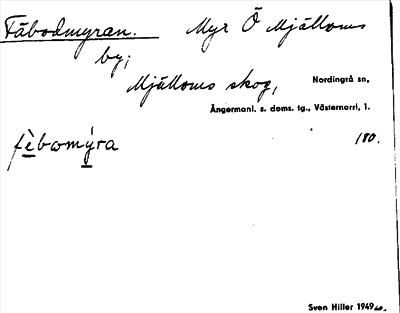 Fäbodmyran. Myr Ö Mjälloms
by;
Mjälloms skog, Nordingrå sn,
Ångermanl. s. doms. tg., Västernorrl, l.
fèbomýra 180.
Sven Hiller 1949